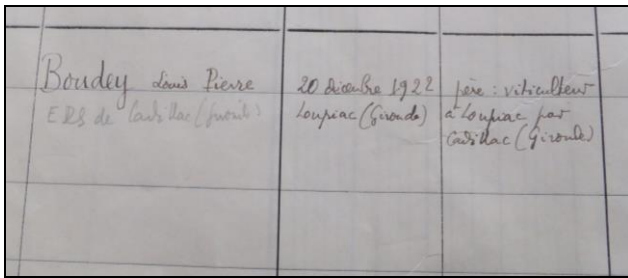 Boudey Louis Pierre
ERS de Cadillac
20 décembre 1922
Loupiac (Gironde)
père : viticulteur
à Loupiac par
Cadillac (Gironde)